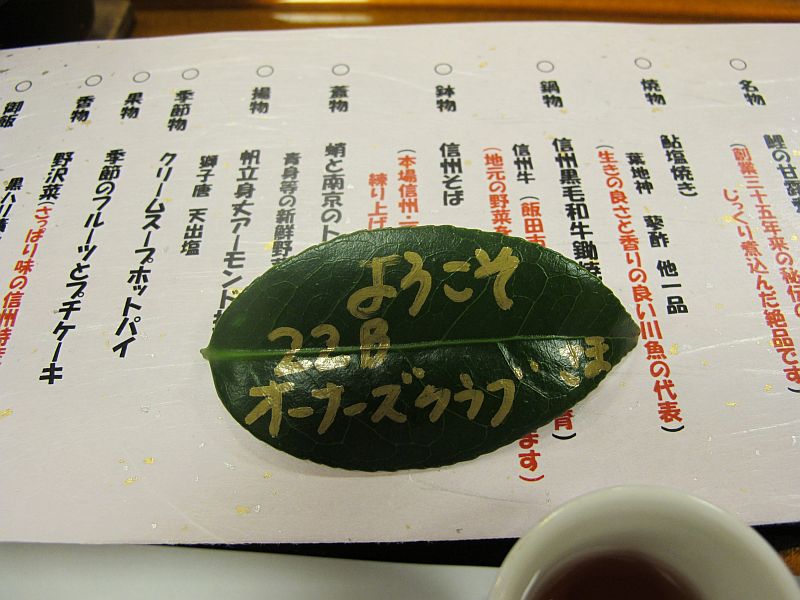 名物
鯉の甘露
(創業三十五年来の秘伝の
じっくり煮込んだ絶品です)
焼物
鮎塩焼き
葉地神 蓼酢 他一品
(生きの良さと香りの良い川魚の代表)
鍋物
信州黒毛和牛鋤焼
信州牛(飯田市
(地元の野菜を
ます)
育)
鉢物
信州そば
(本場信州・
練り上げ
蓋物
蛸と南京のト
青身等の新鮮野
揚物
帆立身大アーモンド
獅子唐 天出塩
季節物
クリームスープポットパイ
果物
季節のフルーツとプチケーキ
香物
野沢菜(さっぱり味の信州特産
御飯
黒ハリ
ようこそ
22B
オーナーズクラブ